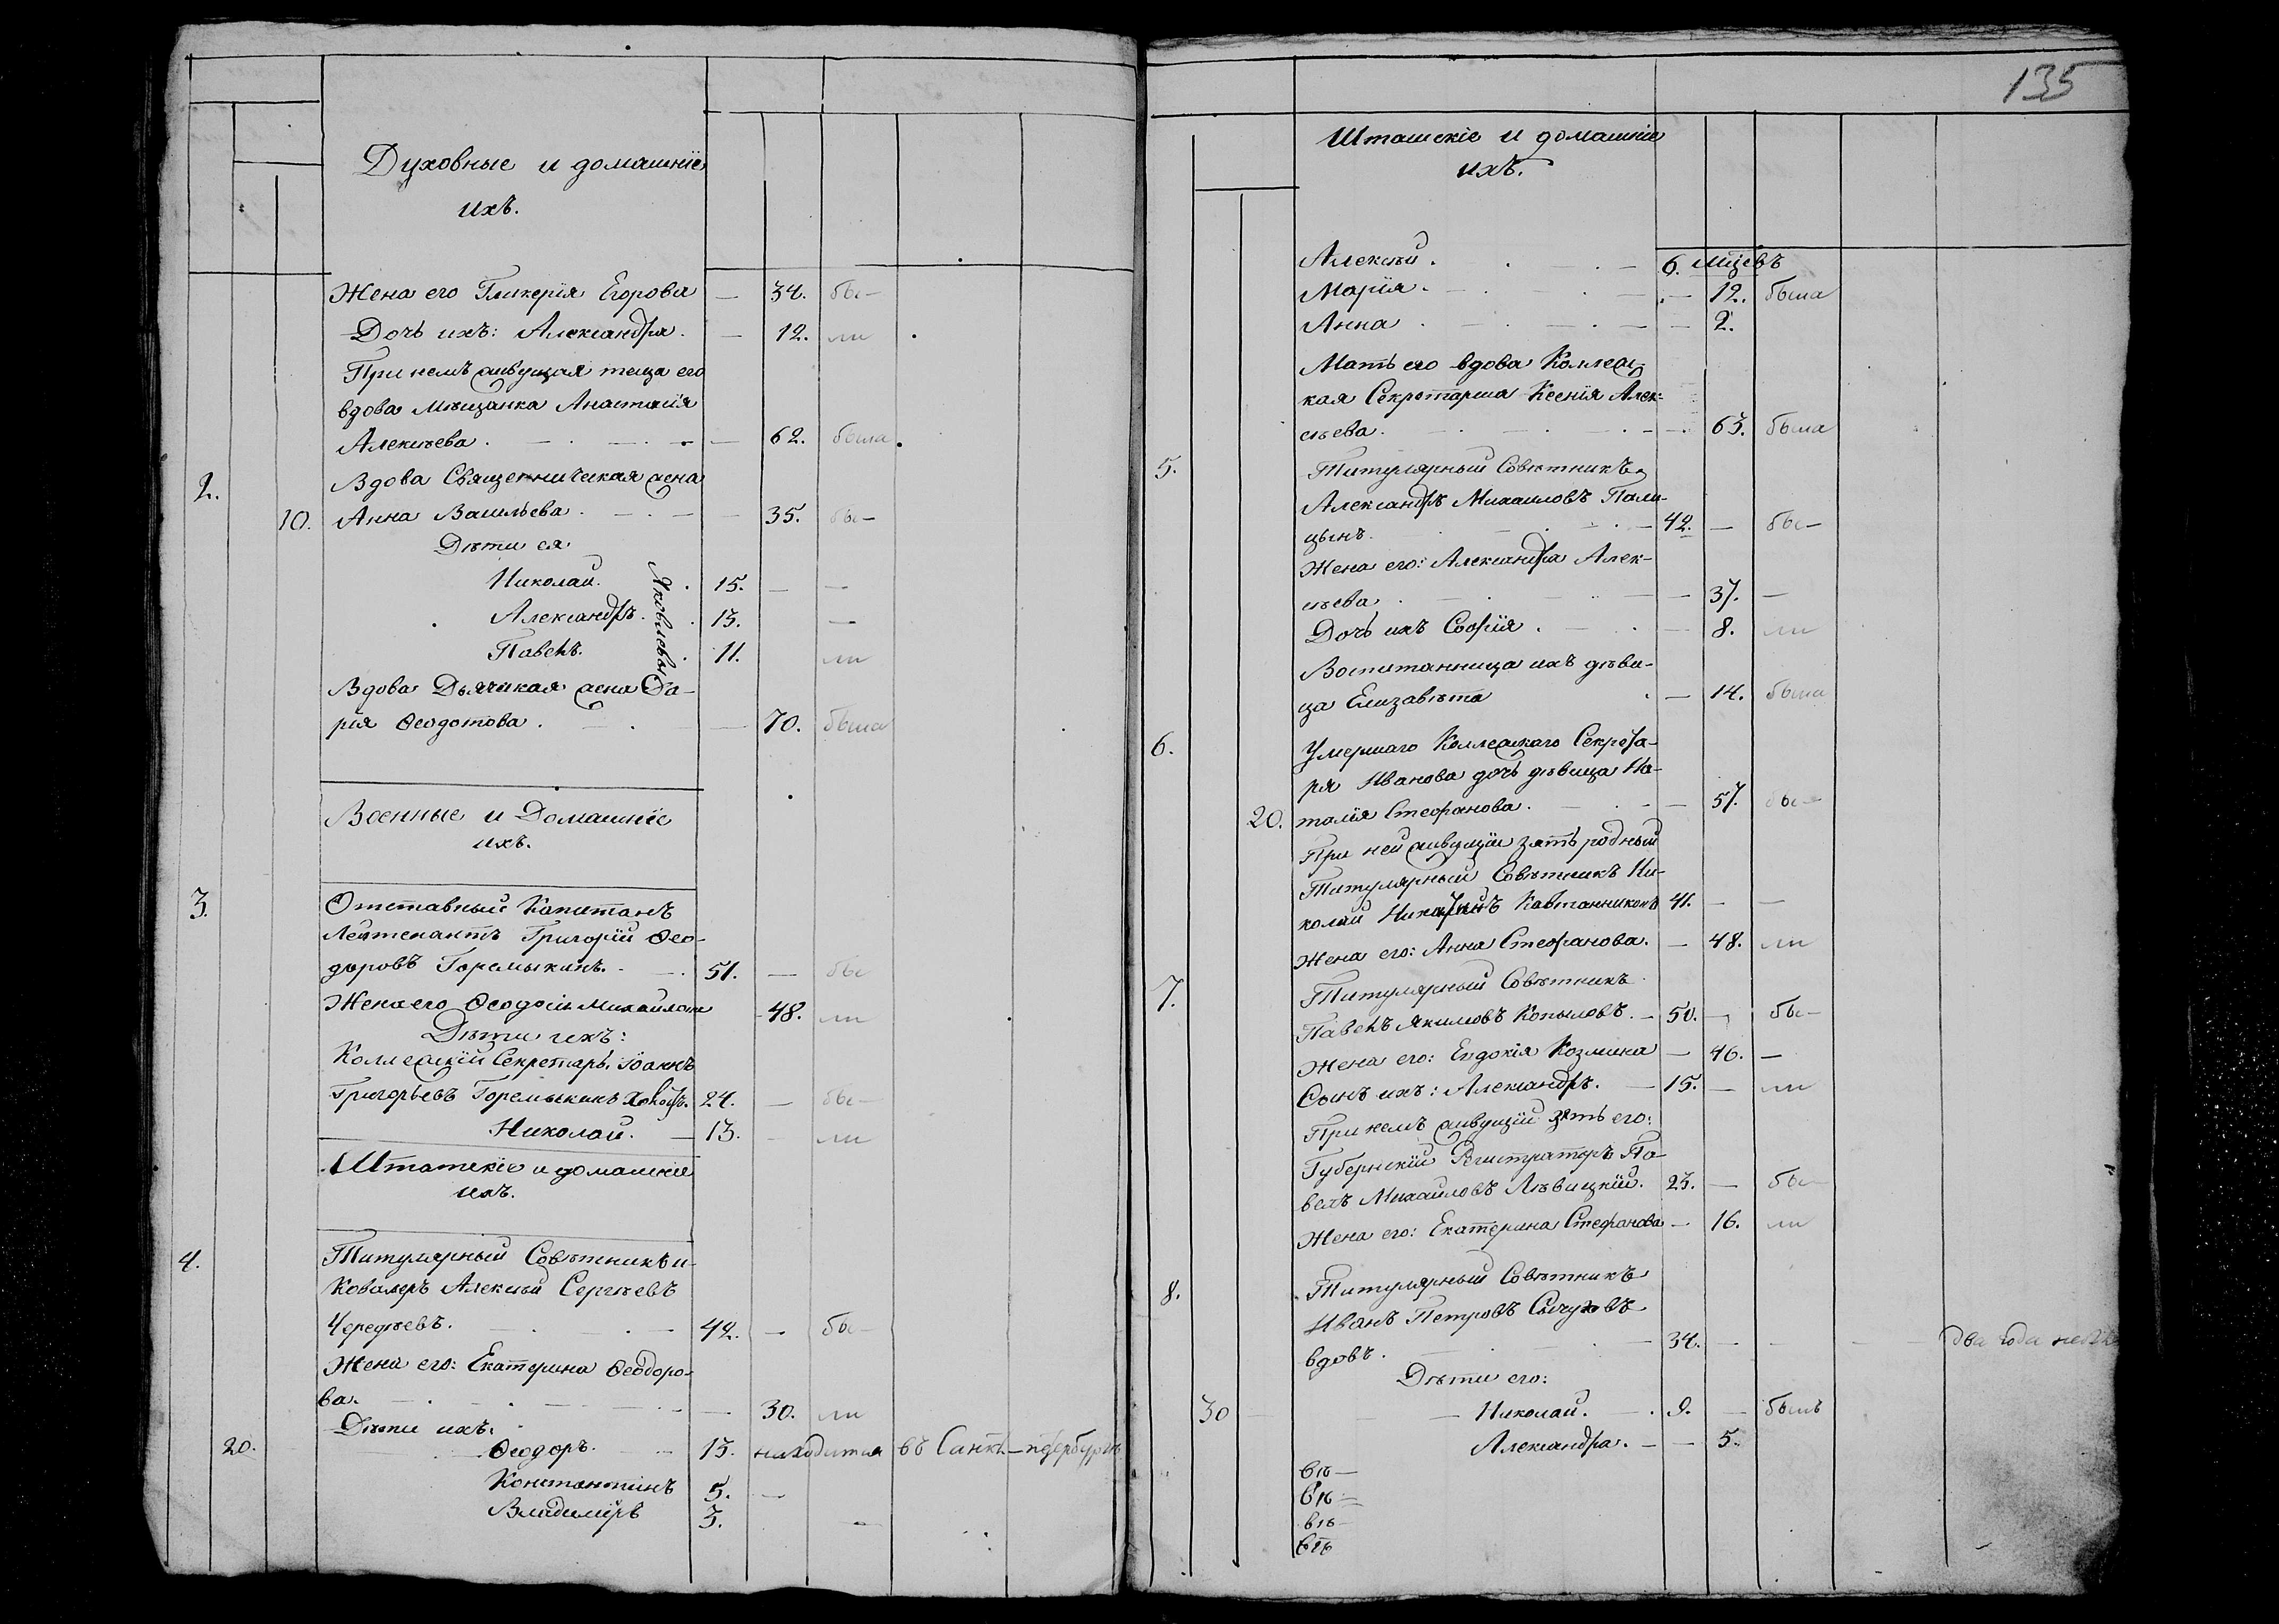 Духовные и домашніе
ихъ.
Жена его Гликерія Егорова — 34. бы—
Дочь ихъ: Александра. — 12. ли
При немъ живущая теща его
вдова мѣщанка Анастасія
Алексѣева. — 62. была
2. Вдова Священническая жена
10. Анна Васильева. — 35. бы—
Дѣти ея
Николай. 15. — —
Александръ. 13. —
Павелъ. 11. ли
Яковлевы
Вдова Дьячиская жена Да-
рія Ѳеодотова. — 70. была
Военные и Домашніе
ихъ.
3. Отставный Капитанъ
Лейтенантъ Григорій Ѳео-
доровъ Горемыкинъ. 51. — бы
Жена его Ѳеодосія Михайлова 48. ли
Дѣти ихъ:
Коллежскій Секретарь Іоаннъ
Григорьевъ Горемыкинъ холостъ. 24. — бы—
Николай. — 13. — ли
Штатскіе и домашніе
ихъ.
4. Титулярный Совѣтникъ и
Кавалеръ Алексѣй Сергѣевъ
Чередѣевъ. 42. — бы—
Жена его: Екатерина Ѳеодоро-
ва. — 30. ли
Дѣти ихъ:
20. Ѳеодоръ. 13. находится въ Санкт—петербургѣ
Константинъ 5. —
Владимиръ 3. —
135
Штатскіе и домашніе
ихъ.
Алексѣй. — 6. мцевъ
Марія. — 12. была
Анна — 2.
Мать его вдова Коллеж-
кая Секретарша Ксенія Алек-
сѣева. — 63. была
5. Титулярный Совѣтникъ
Александръ Михаиловъ Пали-
цынъ. — 42. — бы—
Жена его: Александра Алек-
сѣева — 37. —
Дочь ихъ Софія. — 8. ли
Воспитанница ихъ дѣви-
ца Елизавѣта — 14. была
6. Умершаго Коллежскаго Секрета-
ря Иванова дочь дѣвица На-
20. талія Стефанова. — 57. бы—
При ней живущій зять родный
Титулярный Совѣтникъ Ни-
колай Кавтанниковъ 41. — —
Жена его: Анна Стефанова. — 48. ли
7. Титулярный Совѣтникъ
Павелъ Якимовъ Копыловъ. — 50. — бы—
Жена его: Евдокія Козмина — 46. —
Сынъ ихъ: Александръ. — 15. — ли
При немъ живущій зять его:
Губернскій Регистраторъ Па-
велъ Михаиловъ Лѣвицкій. 23. — бы—
Жена его: Екатерина Стефанова — 16. ли
8. Титулярный Совѣтникъ
Иванъ Петровъ
вдовъ. — 34. — — — два года не
Дѣти его:
30 — Николай. — 9. — былъ
Александра. — — 5.